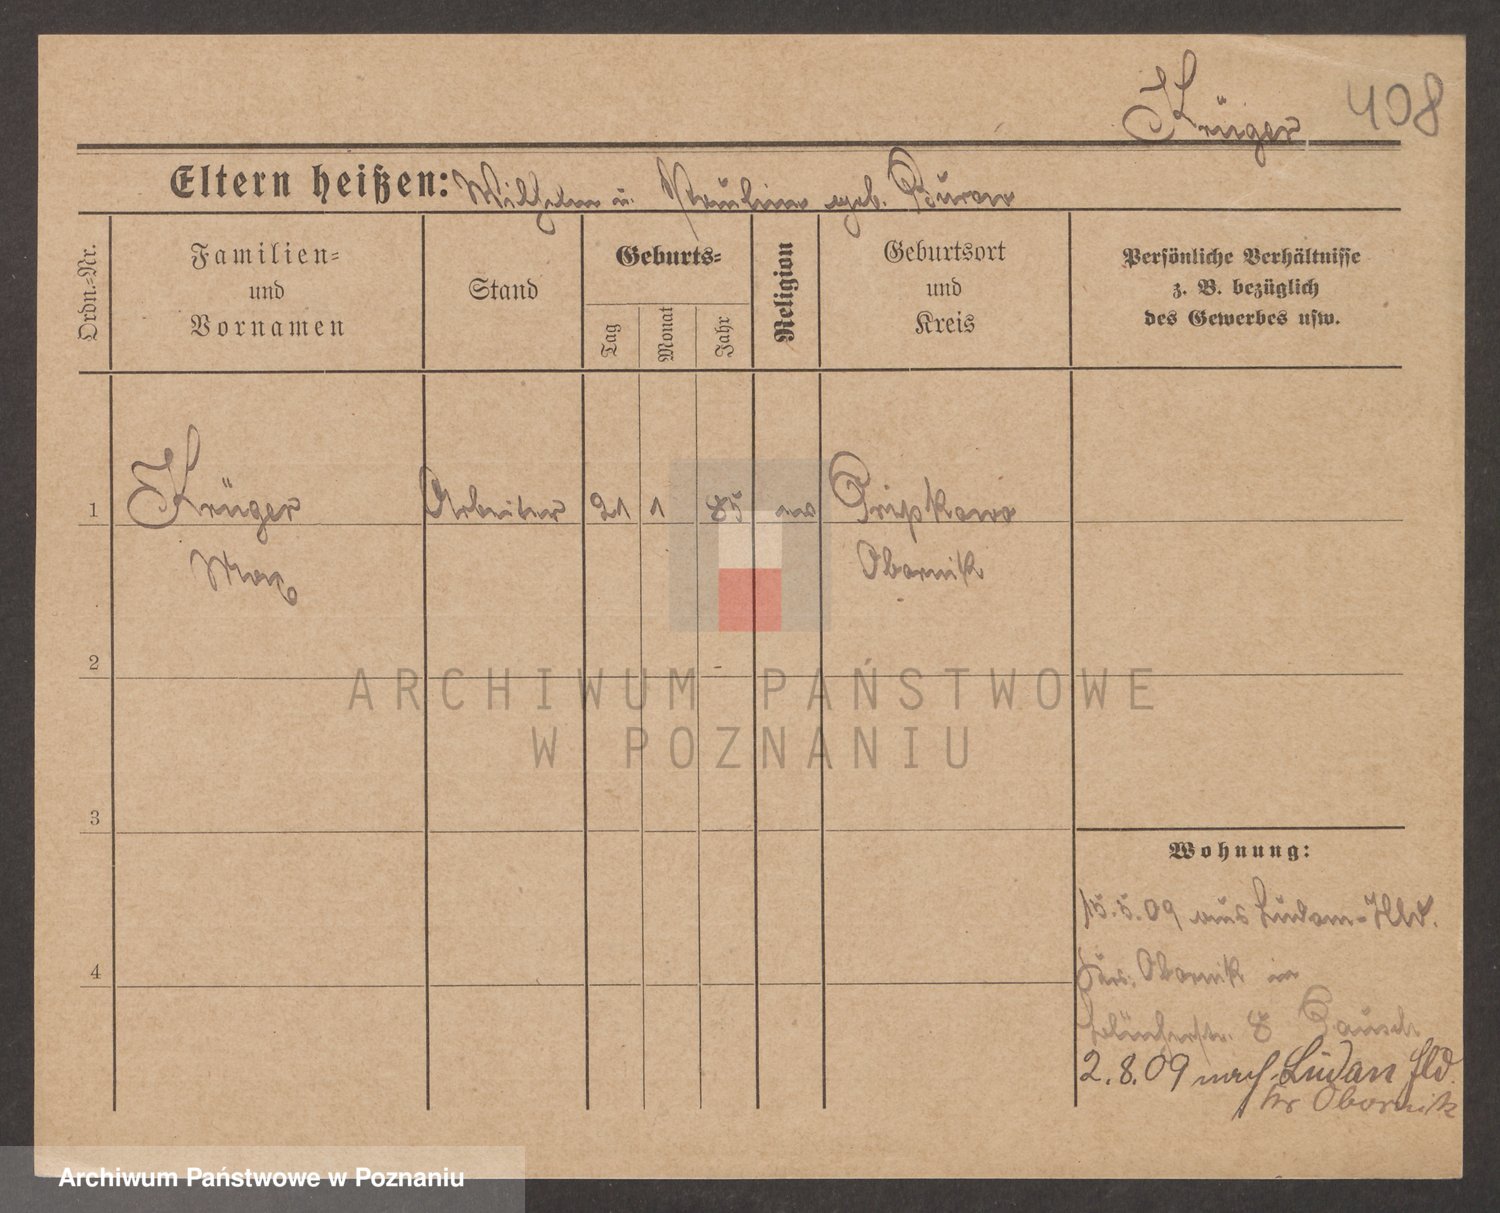 Krüger 408
Eltern heißen: Wilhelm u. Pauline geb. Buron
Ordn.-Nr.
Familien-
und
Vornamen
Stand
Geburts-
Tag
Monat
Jahr
Religion
Geburtsort
und
Kreis
Persönliche Verhältnisse
z. B. bezüglich
des Gewerbes usw.
1 Krüger Arbeiter 21 1 85 ev Pripkowo
Max Obornik
2
3
4
Wohnung:
15.5.09 aus Ludom-Hld.
Krs. Obornik in
8
2.8.09 nach Ludan Hld
Kr Obornik
ARCHIWUM PAŃSTWOWE
W POZNANIU
Archiwum Państwowe w Poznaniu